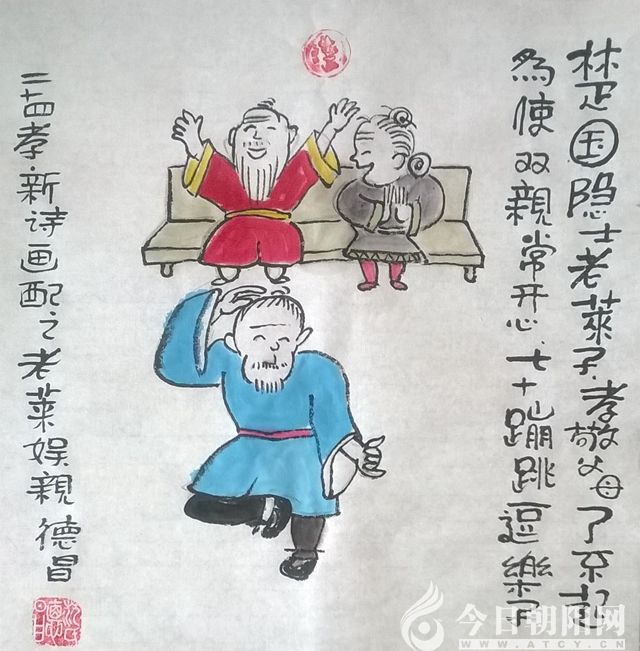 楚国隐士老萊子,孝敬父母了不起
為使双親常开心,七十蹦跳逗樂子
二十四孝.新诗画配之老莱娱親 德昌
今日朝阳网
WWW.ATCY.CN